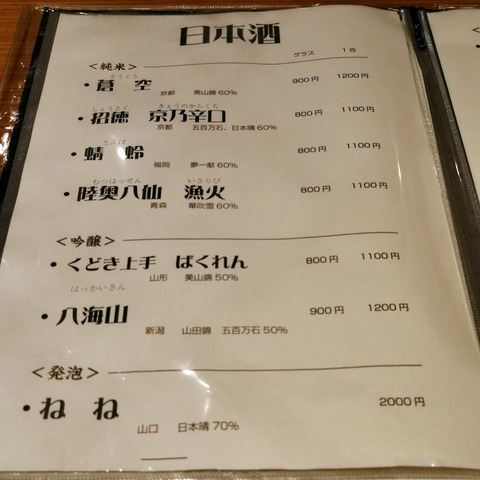 日本酒
グラス 1合
＜純米＞
そうくう
・蒼 空 900円 1200円
京都 美山錦60%
しょうとく きょうのからくち
・招徳 京乃辛口 800円 1100円
京都 五百万石、日本晴60%
とんぼ
・蜻 蛉 800円 1100円
福岡 夢一献60%
むつはっせん いさりび
・陸奥八仙 漁火 800円 1100円
青森 華吹雪60%
＜吟醸＞
・くどき上手 ばくれん 800円 1100円
山形 美山錦50%
はっかいさん
・八海山 900円 1200円
新潟 山田錦 五百万石50%
＜発泡＞
・ね ね 2000円
山口 日本晴70%